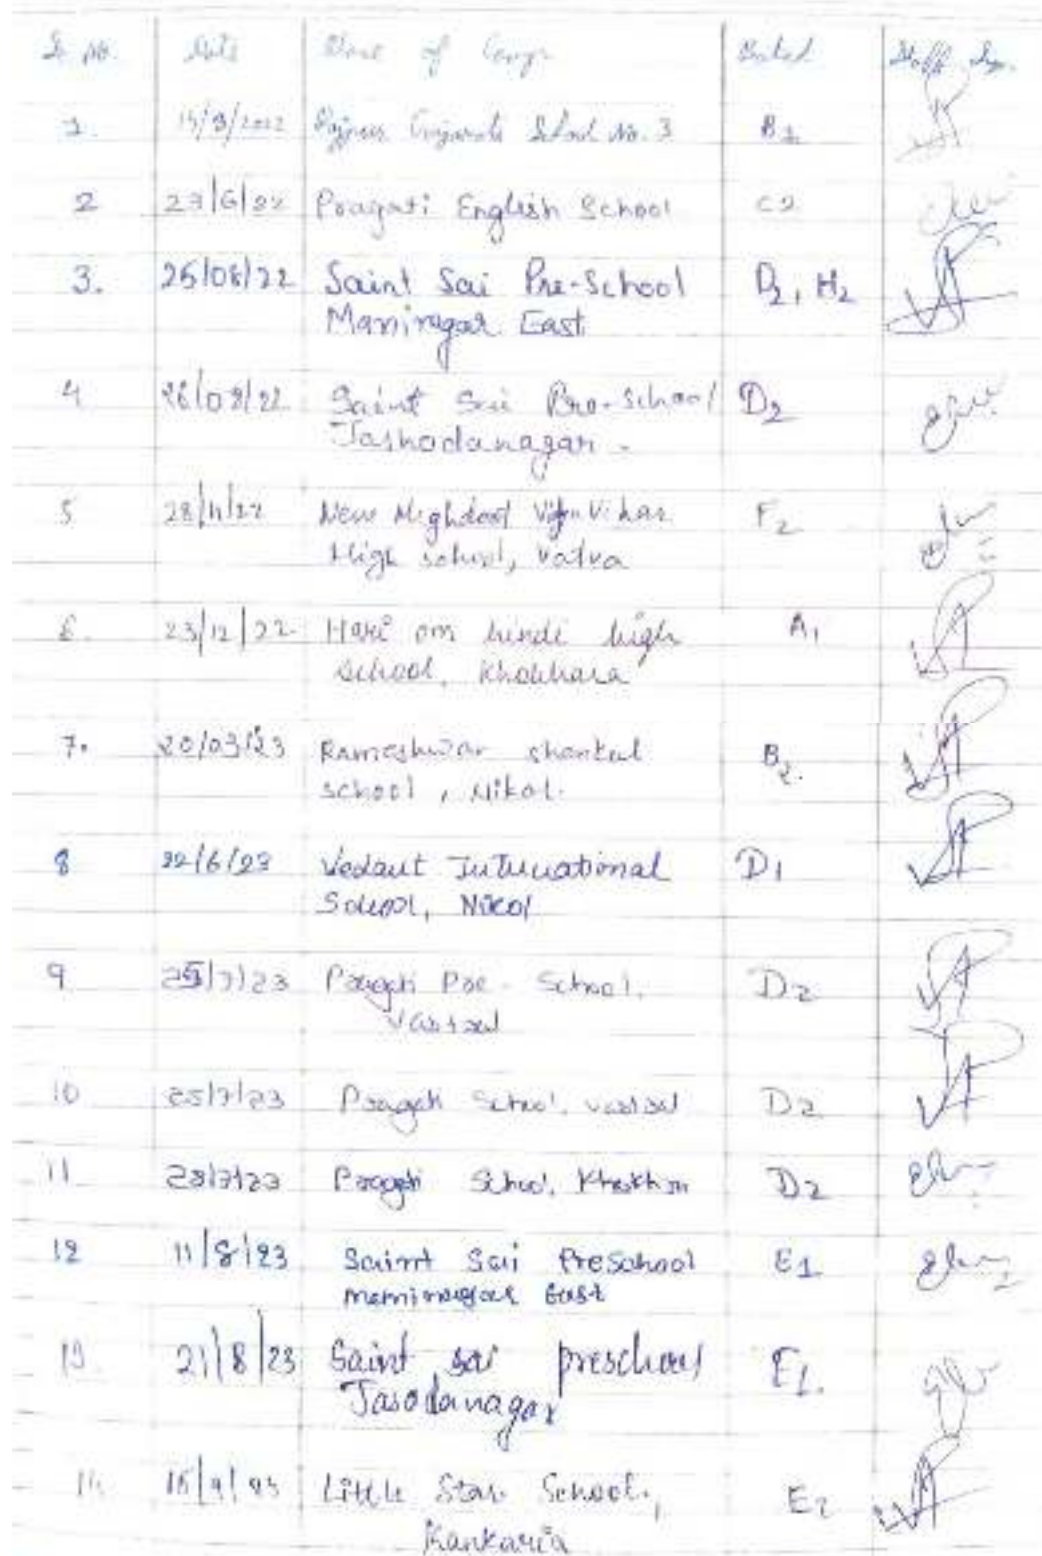 Sr No. Date Name of Camp Batch Staff Sign.
1. 15/3/2022 Rajpur Gujarati School No. 3 B1
2 27/6/22 Pragati English School C2
3. 25/08/22 Saint Sai Pre-School D2, H2
Maninagar East
4 26/08/22 Saint Sai Pre-School D2
Jashodanagar -
5 28/11/22 New Meghdoot Vihar F2
High school, Vatva
6. 23/12/22 Hari om hindi high A1
school, Khokhara
7. 20/03/23 Rameshwar shankul B2.
school, Nikol.
8 22/6/23 Vedant International D1
School, Nikol
9 25/7/23 Pragati Pre-School, D2
Vastral
10 25/7/23 Pragati School, Vastral D2
11 28/7/23 Pragati School, Khokhra D2
12 11/8/23 Saint Sai Preschool E1
maninagar East
13. 21/8/23 Saint sai preschool E1.
Jasodanagar
14. 15/9/23 Little Star School, E2
Kankaria